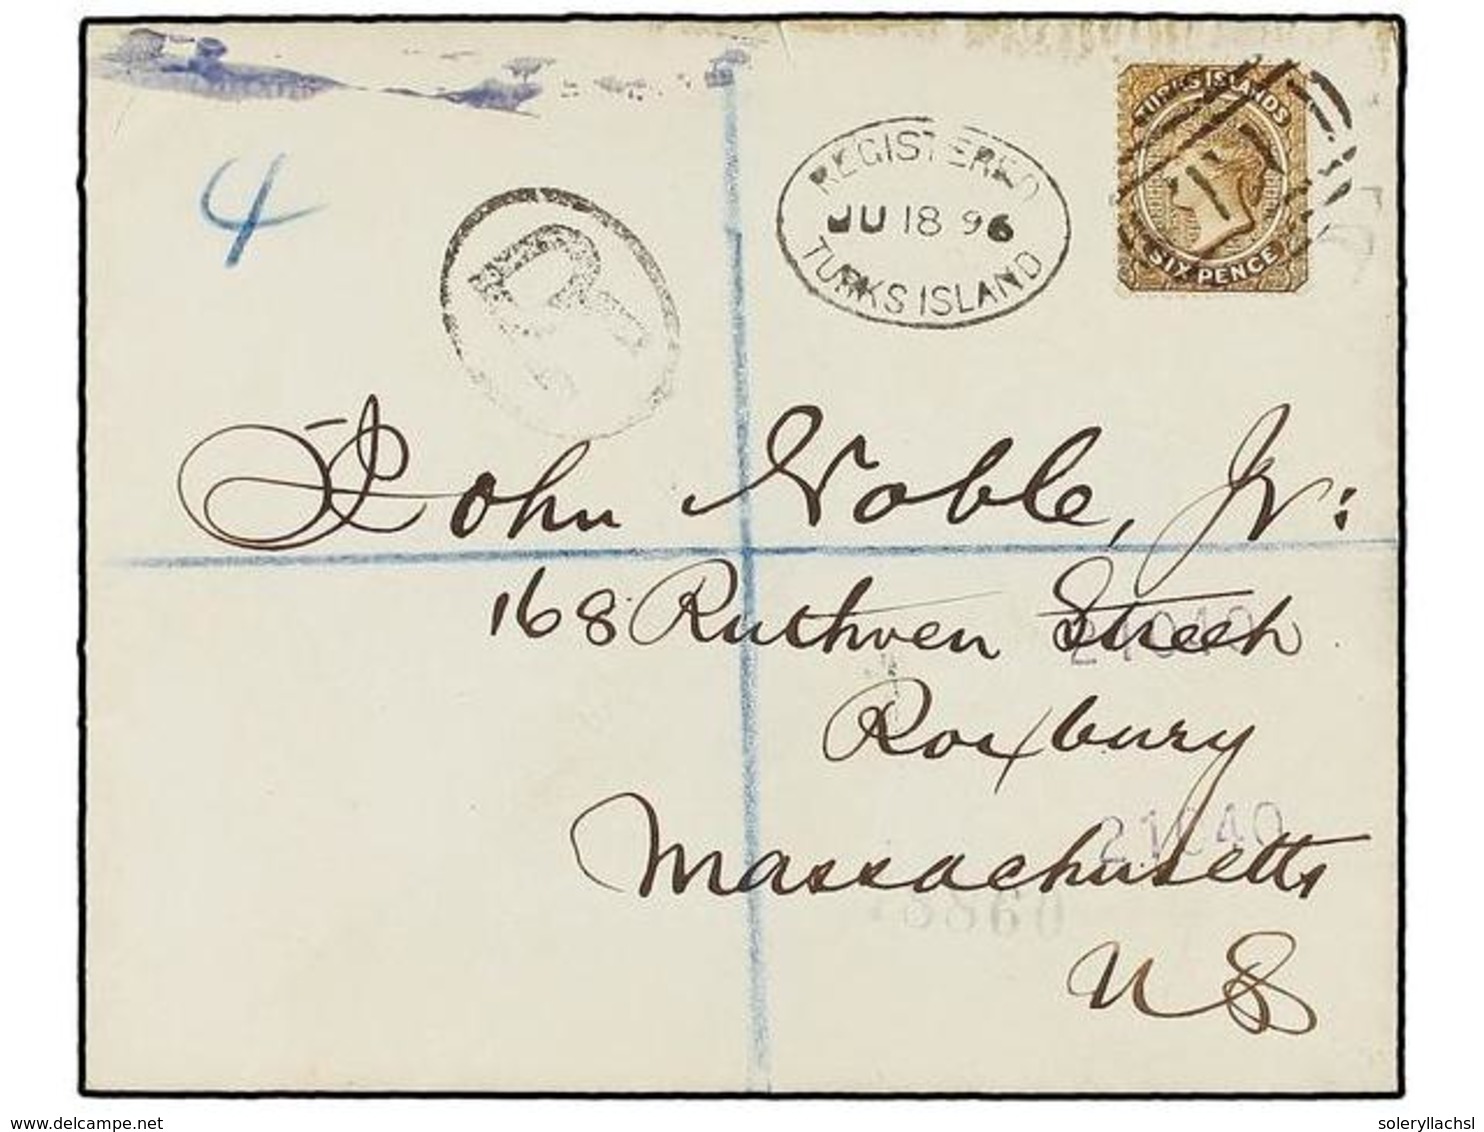 TURKS ISLANDS
REGISTERED
JU 18 96
TURKS ISLAND
SIX PENCE
4
R
John Noble, Jr:
168 Ruthven Street
21040
Roxbury
21040
Massachusetts
U S
soleryllachsl